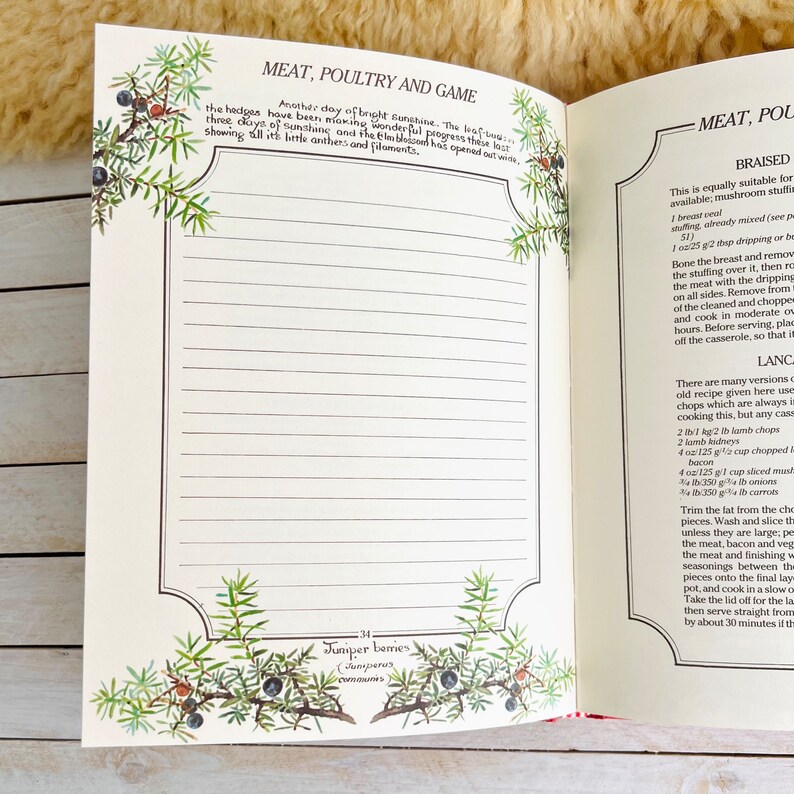 MEAT, POULTRY AND GAME
Another day of bright sunshine. The leaf-buds in
the hedges have been making wonderful progress these last
three days of sunshine and the Elm blossom has opened out wide,
showing all it's little anthers and filaments.
34
Juniper berries
(Juniperus
communis)
MEAT, POU
BRAISED
This is equally suitable for
available; mushroom stuffin
1 breast veal
stuffing, already mixed (see p
51)
1 oz/25 g/2 tbsp dripping or bu
Bone the breast and remov
the stuffing over it, then ro
the meat with the dripping
on all sides. Remove from
of the cleaned and chopped
and cook in moderate ov
hours. Before serving, plac
off the casserole, so that it
LANCA
There are many versions o
old recipe given here use
chops which are always i
cooking this, but any cass
2 lb/1 kg/2 lb lamb chops
2 lamb kidneys
4 oz/125 g/1/2 cup chopped l
bacon
4 oz/125 g/1 cup sliced mush
3/4 lb/350 g/3/4 lb onions
3/4 lb/350 g/3/4 lb carrots
Trim the fat from the cho
pieces. Wash and slice th
unless they are large; pe
the meat, bacon and veg
the meat and finishing w
seasonings between the
pieces onto the final laye
pot, and cook in a slow o
Take the lid off for the la
then serve straight from
by about 30 minutes if th